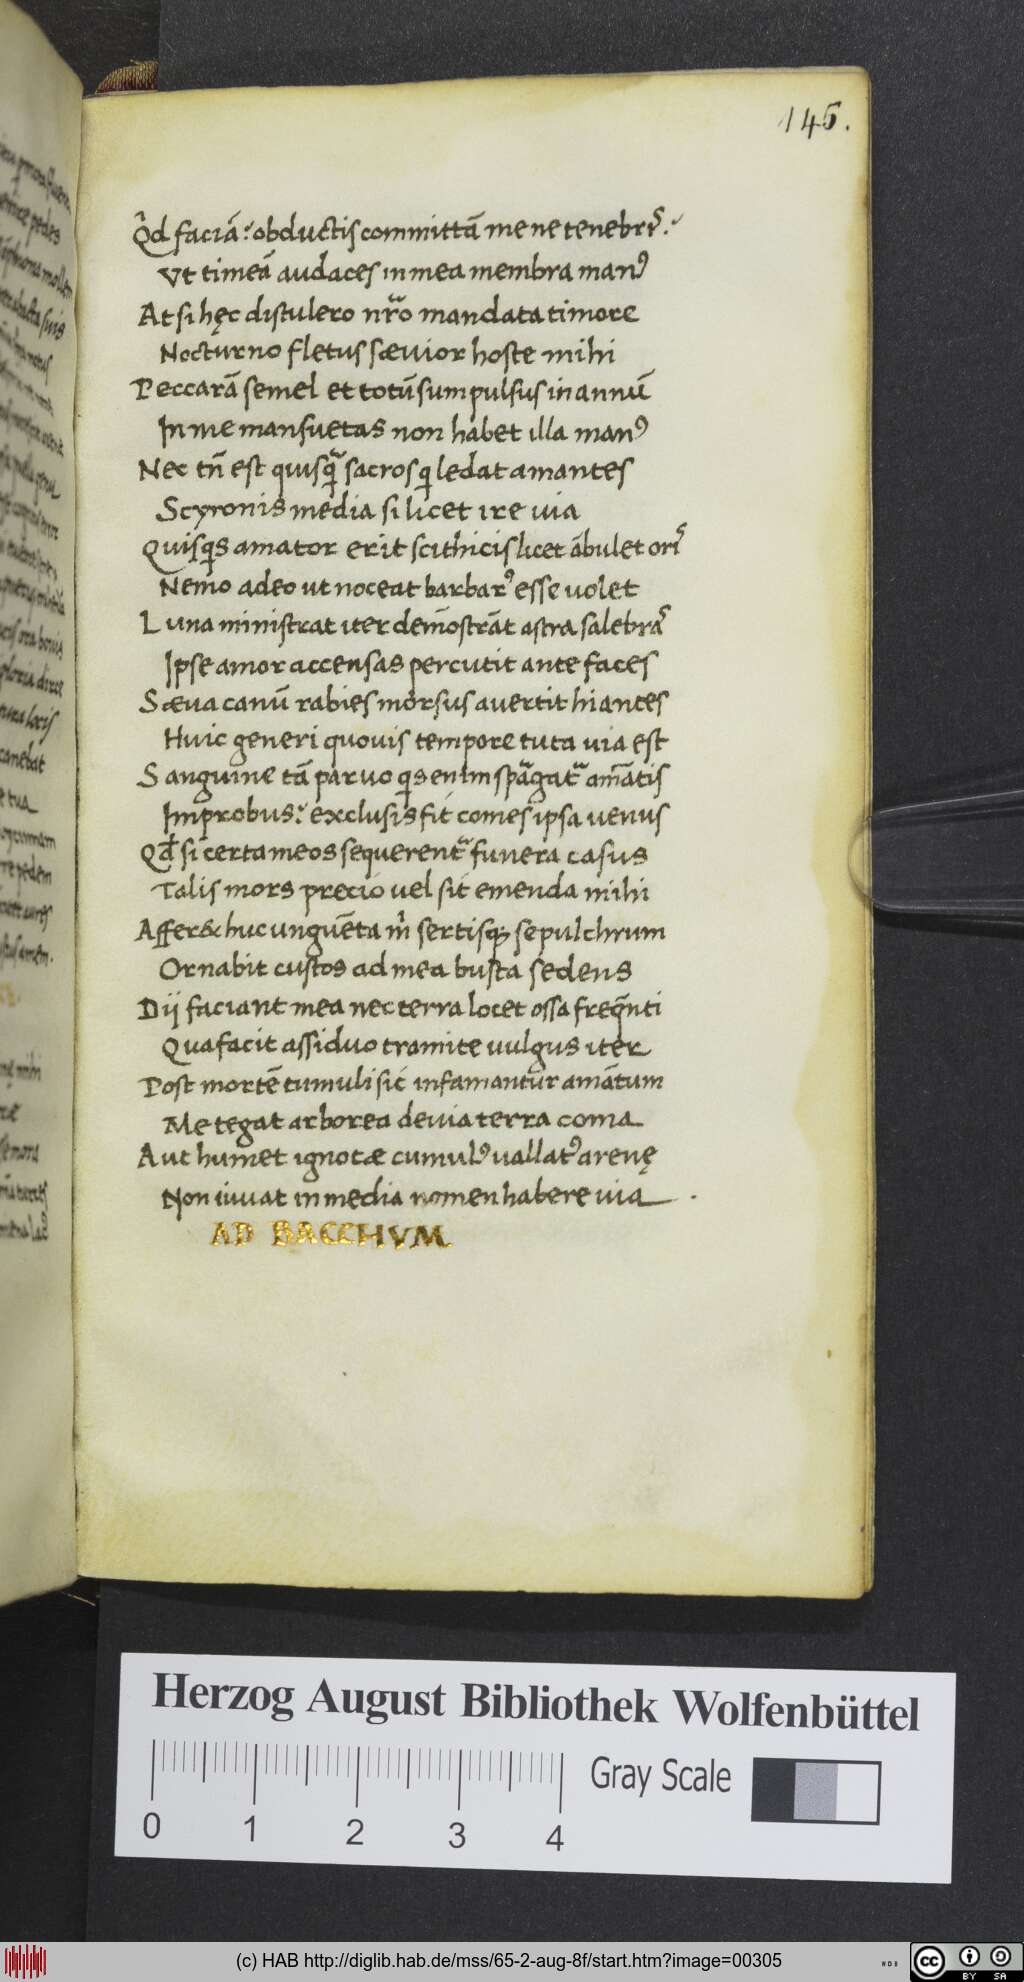 145.
Qd̉ faciā? obductis committā me ne tenebrꝭ?
Vt timeā audaces in mea membra manꝰ
At si hęc distulero nr̄o mandata timore
Nocturno fletus sævior hoste mihi
Peccarā semel et totū sum pulsus in annū
In me mansuetas non habet illa manꝰ
Nec tn̄ est quisq̄ sacros qi ledat amantes
Scyronis media si licet ire uia
Quisqs amator erit scithicis licet ābulet orꝭ
Nemo adeo ut noceat barbarꝰ esse uolet
Luna ministrat iter demōstrāt astra salebraꝭ
Ipse amor accensas percutit ante faces
Sæua canū rabies morsus auertit hiantes
Huic generi quouis tempore tuta uia est
Sanguine tā paruo qs enim spāgatᷣ amātis
Improbus? exclusis fit comes ipsa uenus
Qd̄ si certa meos sequerentᷣ funera casus
Talis mors precio uel sit emenda mihi
Affer& huc unguēta m̉ sertisqꝫ sepulchrum
Ornabit custos ad mea busta sedens
Dij faciant mea nec terra locet ossa freqn̄ti
Qua facit assiduo tramite uulgus iter
Post mortē tumuli sic infamantur amātum
Me tegat arborea deuia terra coma
Aut humet ignotæ cumulꝰ uallatꝰ arenę
Non iuuat in media nomen habere uia .
AD BACCHVM
Herzog August Bibliothek Wolfenbüttel
Gray Scale
0 1 2 3 4
(c) HAB http://diglib.hab.de/mss/65-2-aug-8f/start.htm?image=00305
cc BY SA